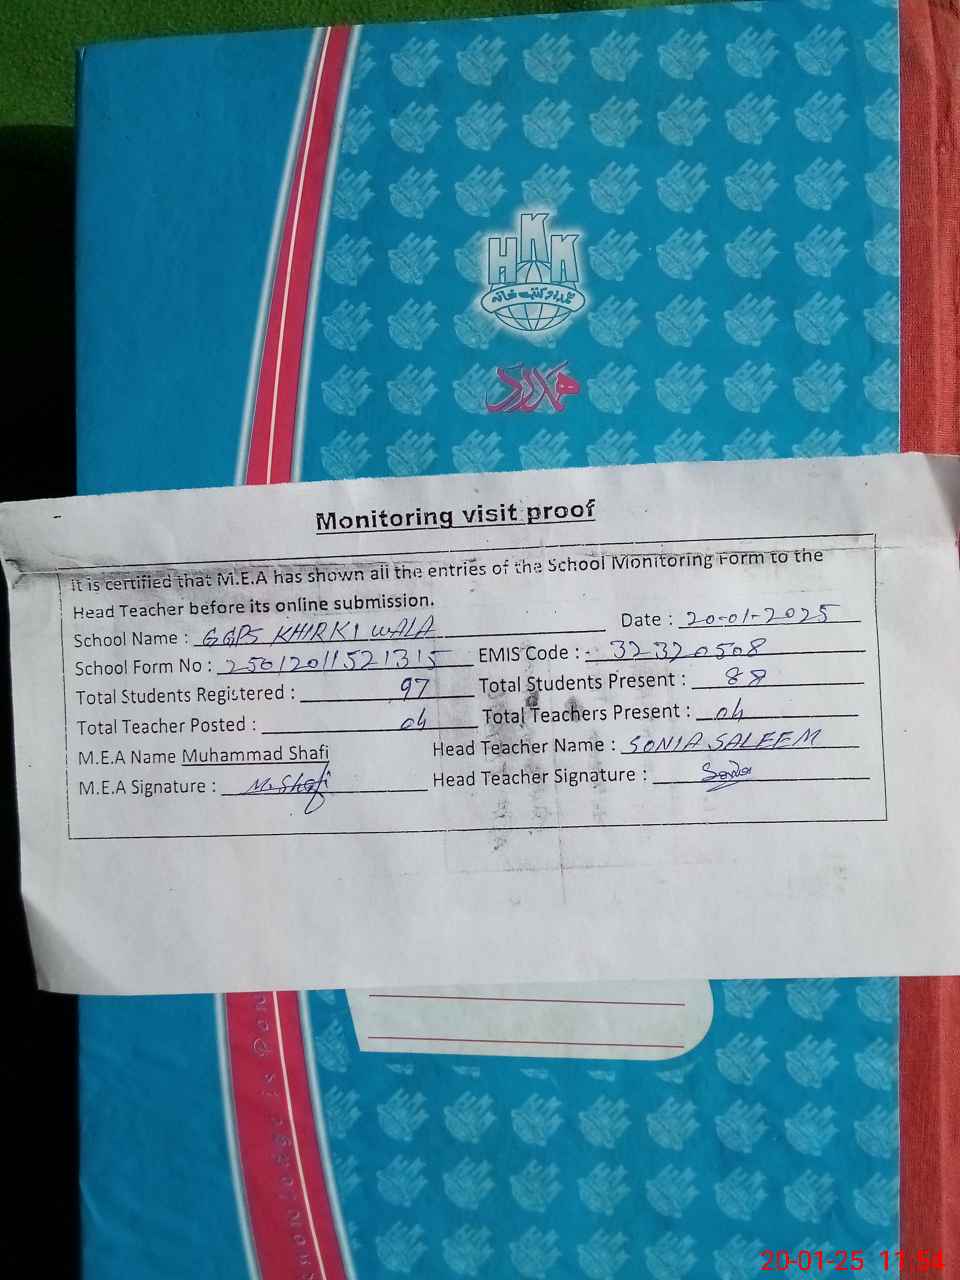 HKK
ہمدرد کتب خانہ
ہمدرد
Monitoring visit proof
It is certified that M.E.A has shown all the entries of the School Monitoring Form to the
Head Teacher before its online submission.
School Name : GGPS KHIRKI WALA Date : 20-01-2025
School Form No : 25012011521315 EMIS Code : 32320508
Total Students Registered : 97 Total Students Present : 88
Total Teacher Posted : 04 Total Teachers Present : 04
M.E.A Name Muhammad Shafi Head Teacher Name : SONIA SALEEM
M.E.A Signature : M. Shafi Head Teacher Signature : Sonia
Knowledge is Pow
20-01-25 11:54